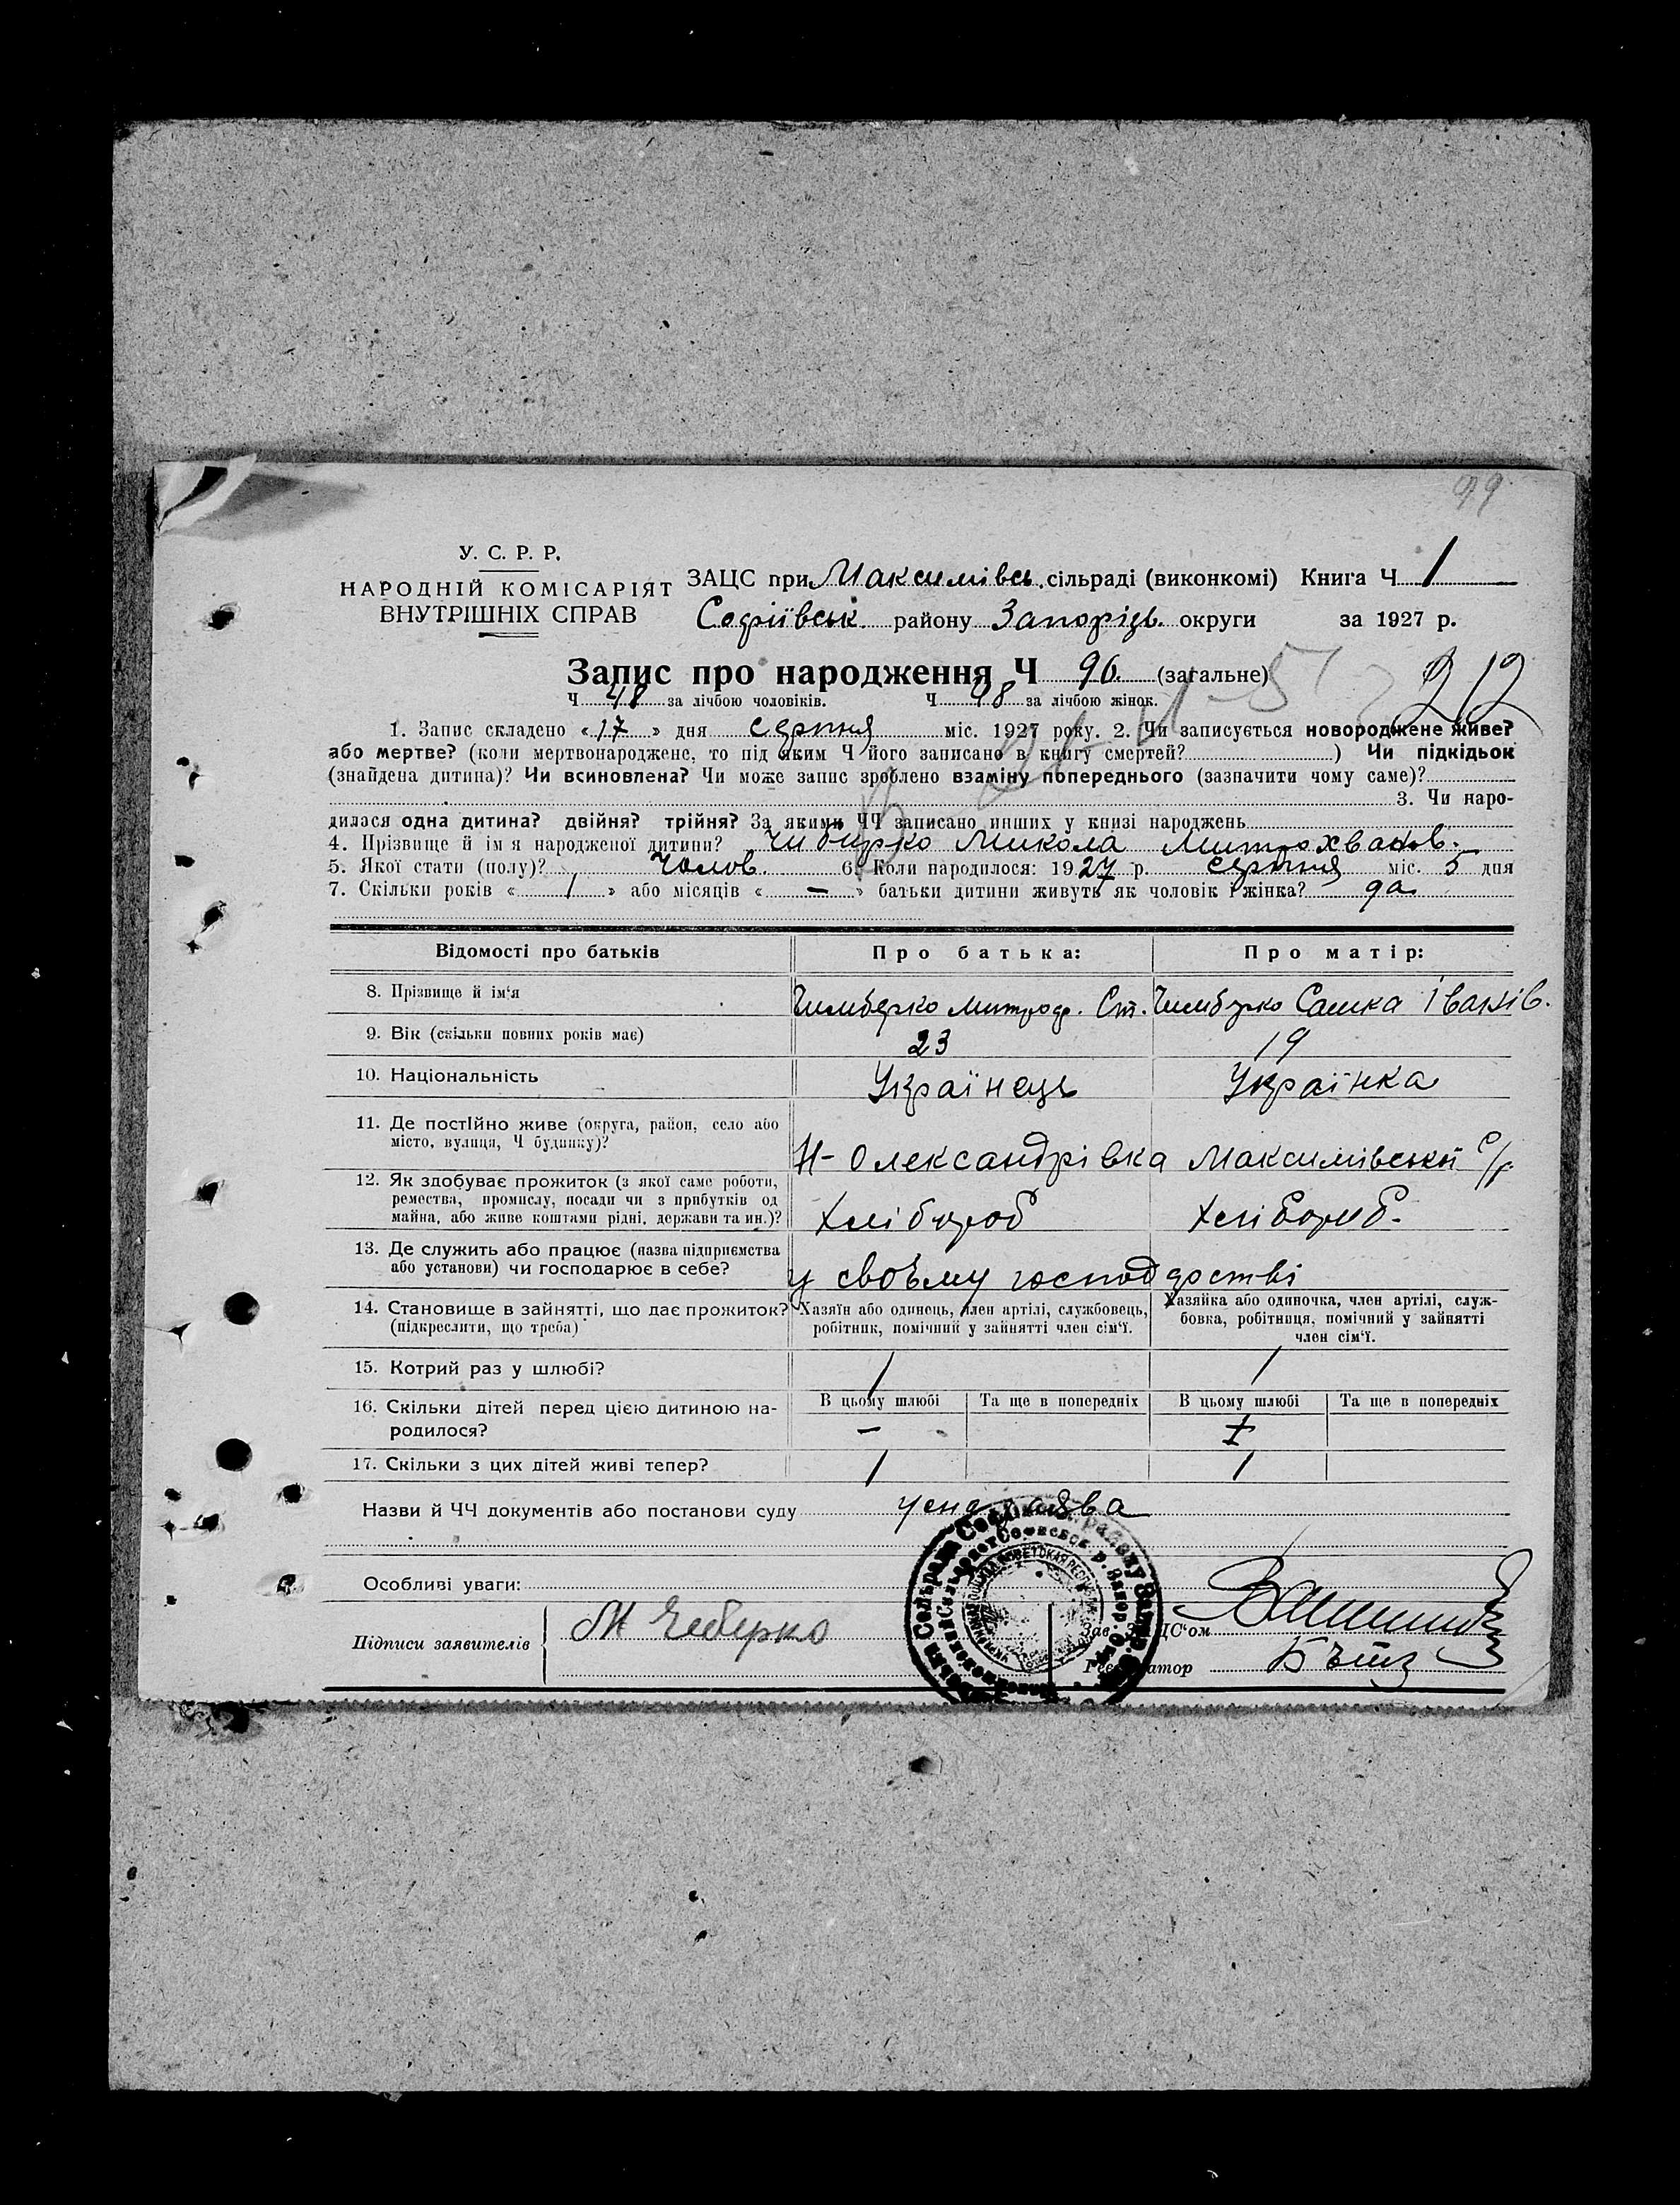 99
У. С. Р. Р.
НАРОДНІЙ КОМІСАРІЯТ
ВНУТРІШНІХ СПРАВ
ЗАЦС при Максимівсь. сільраді (виконкомі) Книга Ч 1
Софіївськ. району Запорізь. округи за 1927 р.
Запис про народження Ч 96. (загальне)
212
Ч 48 за лічбою чоловіків. Ч 48 за лічбою жінок.
1. Запис складено «17» дня серпня міс. 1927 року. 2. Чи записується новороджене живе?
або мертве? (коли мертвонароджене, то під яким Ч його записано в книгу смертей? ) Чи підкідьок
(знайдена дитина)? Чи всиновлена? Чи може запис зроблено взаміну попереднього (зазначити чому саме)?
3. Чи наро-
дилася одна дитина? двійня? трійня? За якими ЧЧ записано инших у книзі народжень
4. Прізвище й ім'я народженої дитини? Чибирко Микола Митрохванов.
5. Якої стати (полу)? Чолов. 6. Коли народилося: 1927 р. серпня міс. 5 дня
7. Скільки років « 1 » або місяців « — » батьки дитини живуть як чоловік і жінка? да
Відомості про батьків
Про батька:
Про матір:
8. Прізвище й ім'я
Чимберко Митроф. Ст.
Чимбурко Сашка Іванів.
9. Вік (скільки повних років має)
23
19
10. Національність
Українець
Українка
11. Де постійно живе (округа, район, село або
місто, вулиця, Ч будинку)?
Н-Олександрівка Максимівської с/р.
12. Як здобуває прожиток (з якої саме роботи,
ремества, промислу, посади чи з прибутків од
майна, або живе коштами рідні, держави та ин.)?
Хлібороб
Хлібороб.
13. Де служить або працює (назва підприємства
або установи) чи господарює в себе?
у своъму господарстві
14. Становище в зайнятті, що дає прожиток?
(підкреслити, що треба)
Хазяїн або одинець, член артілі, службовець,
робітник, помічний у зайнятті член сім'ї.
Хазяйка або одиночка, член артілі, служ-
бовка, робітниця, помічний у зайнятті
член сім'ї.
15. Котрий раз у шлюбі?
1
1
16. Скільки дітей перед цією дитиною на-
родилося?
В цьому шлюбі
Та ще в попередніх
В цьому шлюбі
Та ще в попередніх
—
17. Скільки з цих дітей живі тепер?
1
1
Назви й ЧЧ документів або постанови суду
Особливі уваги:
Підписи заявителів
М Чеберко
Зав. ЗАЦС'ом
Реєстратор